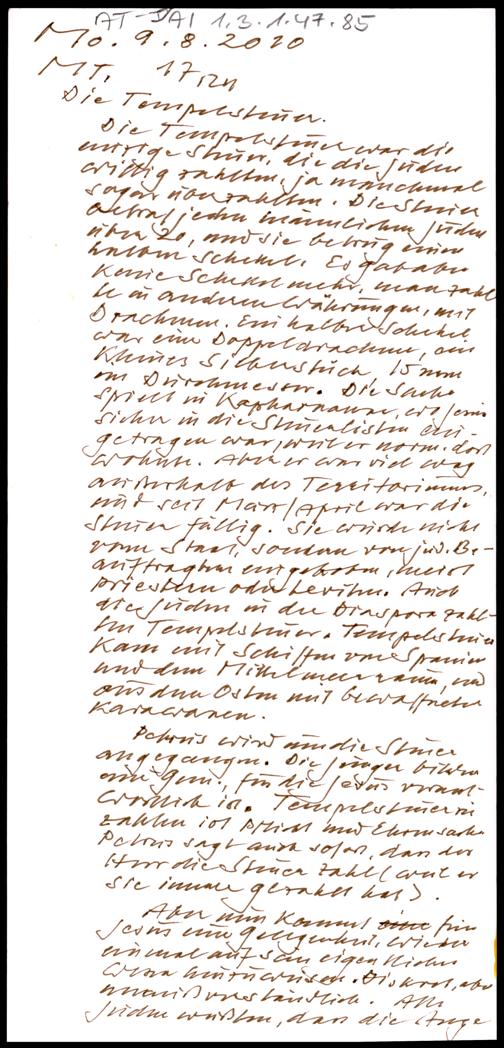 AT-DAI 1.3.1.47.85
Mo. 9.8.2010
Mt. 17,24
Die Tempelsteuer.
Die Tempelsteuer war die
einzige Steuer, die die Juden
willig zahlten, ja manchmal
sogar überzahlten. Die Steuer
betraf jeden männlichen Juden
über 20, und sie betrug einen
halben Schekel. Es gab aber
keine Schekel mehr, man zahl-
te in anderen Währungen, mit
Drachmen. Ein halber Schekel
war eine Doppeldrachme, ein
kleines Silberstück, 15 mm
im Durchmesser. Die Sache
spielt in Kapharnaum, wo Jesus
sicher in die Steuerlisten ein-
getragen war, weil er norm. dort
wohnte. Aber er war viel weg
außerhalb des Territoriums,
und seit März/April war die
Steuer fällig. Sie wurde nicht
vom Staat, sondern von jüd. Be-
auftragten eingehoben, meist
Priestern oder Leviten. Auch
die Juden in der Diaspora zahl-
ten Tempelsteuer. Tempelsteuer
kam mit Schiffen von Spanien
und dem Mittelmeerraum, und
aus dem Osten mit bewaffneten
Karawanen.
Petrus wird um die Steuer
angegangen. Die Jünger bilden
eine Gem., für die Jesus verant-
wortlich ist. Tempelsteuer
zahlen ist Pflicht und Ehrensache
Petrus sagt auch sofort, dass der
Herr die Steuer zahlt (weil er
sie immer gezahlt hat).
Aber nun kommt eine für
Jesus eine Gelegenheit, wieder
einmal auf sein eigentliches
Wesen hinzuweisen. Diskret, aber
unmißverständlich. Alle
Juden wußten, dass die